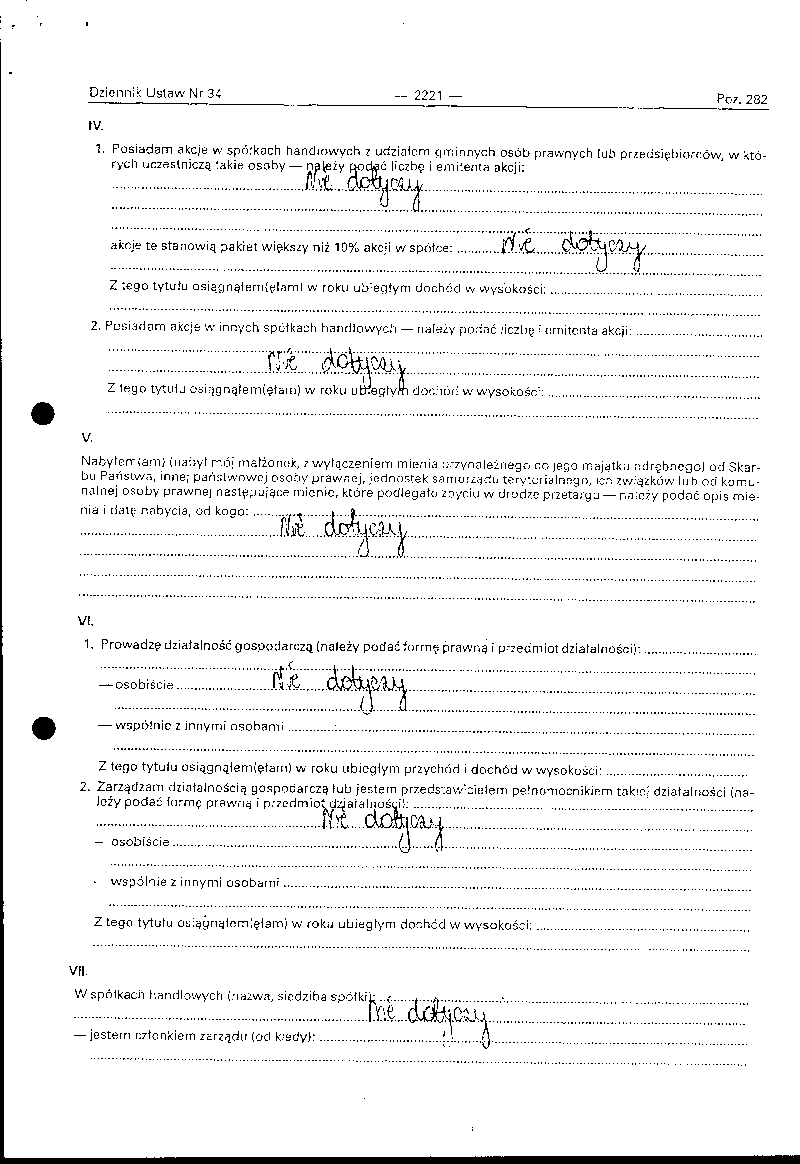 Dziennik Ustaw Nr 34 — 2221 — Poz. 282
IV.
1. Posiadam akcje w spółkach handlowych z udziałem gminnych osób prawnych lub przedsiębiorców, w któ-
rych uczestniczą takie osoby — należy podać liczbę i emitenta akcji:
Nie dotyczy
akcje te stanowią pakiet większy niż 10% akcji w spółce: Nie dotyczy
Z tego tytułu osiągnąłem(ęłam) w roku ubiegłym dochód w wysokości:
2. Posiadam akcje w innych spółkach handlowych — należy podać liczbę i emitenta akcji:
Nie dotyczy
Z tego tytułu osiągnąłem(ęłam) w roku ubiegłym dochód w wysokości:
V.
Nabyłem(am) (nabył mój małżonek, z wyłączeniem mienia przynależnego do jego majątku odrębnego) od Skar-
bu Państwa, innej państwowej osoby prawnej, jednostek samorządu terytorialnego, ich związków lub od komu-
nalnej osoby prawnej następujące mienie, które podlegało zbyciu w drodze przetargu — należy podać opis mie-
nia i datę nabycia, od kogo:
Nie dotyczy
VI.
1. Prowadzę działalność gospodarczą (należy podać formę prawną i przedmiot działalności):
— osobiście Nie dotyczy
— wspólnie z innymi osobami
Z tego tytułu osiągnąłem(ęłam) w roku ubiegłym przychód i dochód w wysokości:
2. Zarządzam działalnością gospodarczą lub jestem przedstawicielem pełnomocnikiem takiej działalności (na-
leży podać formę prawną i przedmiot działalności):
Nie dotyczy
— osobiście
- wspólnie z innymi osobami
Z tego tytułu osiągnąłem(ęłam) w roku ubiegłym dochód w wysokości:
VII.
W spółkach handlowych (nazwa, siedziba spółki):
nie dotyczy
— jestem członkiem zarządu (od kiedy):